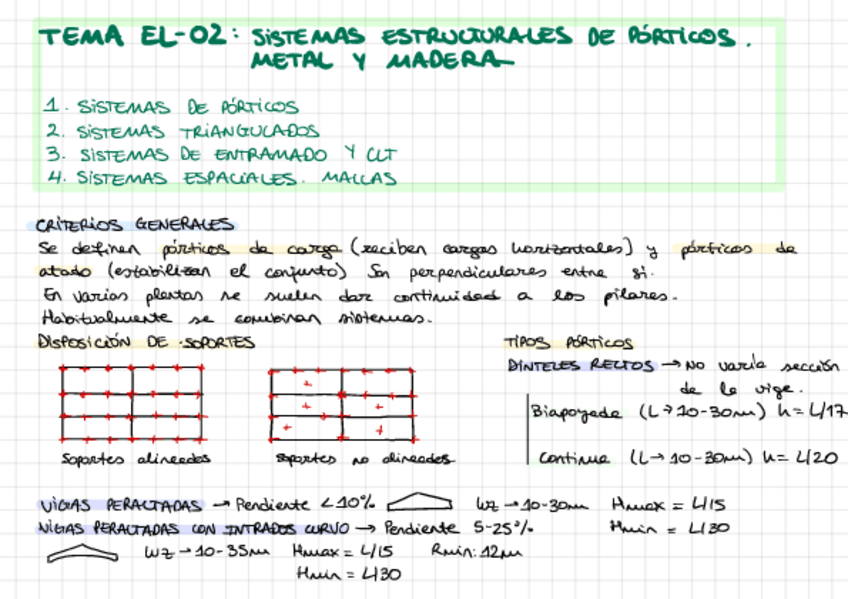 TEMA EL-02: SISTEMAS ESTRUCTURALES DE PÓRTICOS.
METAL Y MADERA
1. SISTEMAS DE PÓRTICOS
2. SISTEMAS TRIANGULADOS
3. SISTEMAS DE ENTRAMADO Y CLT
4. SISTEMAS ESPACIALES. MALLAS
CRITERIOS GENERALES
Se definen pórticos de carga (reciben cargas horizontales) y pórticos de
atado (estabilizan el conjunto) Son perpendiculares entre si.
En varias plantas se suelen dar continuidad a los pilares.
Habitualmente se combinan sistemas.
DISPOSICIÓN DE SOPORTES
Soportes alineados
Soportes no alineados
TIPOS PÓRTICOS
DINTELES RECTOS → No varía sección
de la viga.
Biapoyada (L→10-30m) h=L/17
Continua (L→10-30m) h=L/20
VIGAS PERALTADAS → Pendiente <10% 
WZ → 10-30m Hmax = L/15
Hmin = L/30
VIGAS PERALTADAS CON INTRADOS CURVO → Pendiente 5-25%
WZ → 10-35m Hmax = L/15 Rmin: 12m
Hmin = L/30